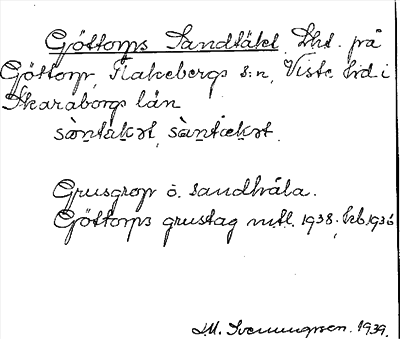 Göttorps Sandtäkt, Lht. på
Göttorp, Flakebergs s:n, Viste hrd i
Skaraborgs län
Grusgrop o. sandhåla.
Göttorps grustag mtl. 1938, hb 1936
D.M. Svenungsson. 1939.